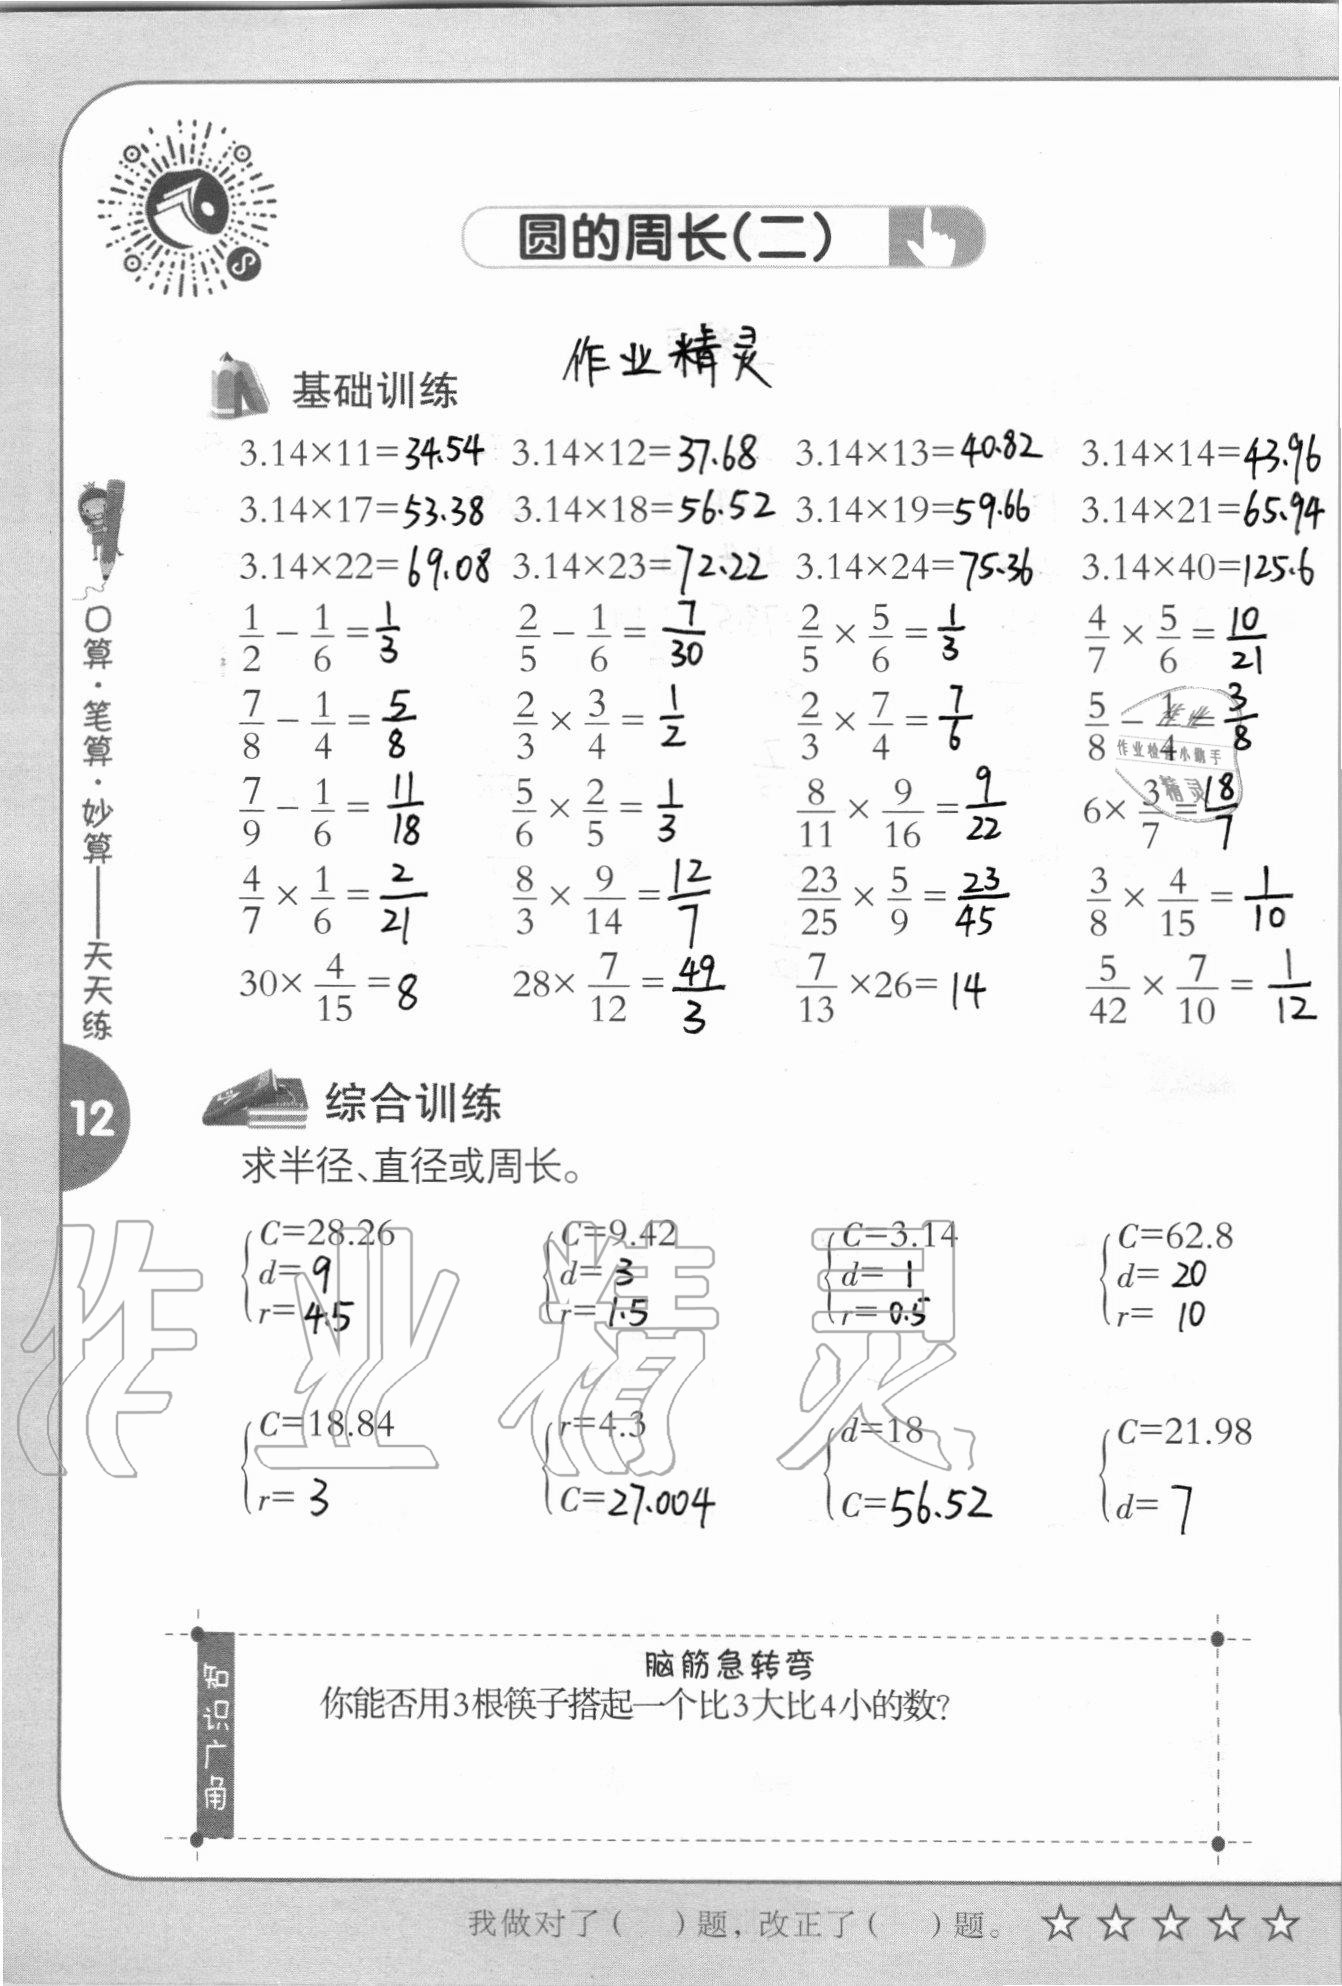 圆的周长(二)
作业精灵
基础训练
3.14×11=34.54 3.14×12=37.68 3.14×13=40.82 3.14×14=43.96
3.14×17=53.38 3.14×18=56.52 3.14×19=59.66 3.14×21=65.94
3.14×22=69.08 3.14×23=72.22 3.14×24=75.36 3.14×40=125.6
1/2 − 1/6 = 1/3 2/5 − 1/6 = 7/30 2/5 × 5/6 = 1/3 4/7 × 5/6 = 10/21
7/8 − 1/4 = 5/8 2/3 × 3/4 = 1/2 2/3 × 7/4 = 7/6 5/8 − 1/4 = 3/8
7/9 − 1/6 = 11/18 5/6 × 2/5 = 1/3 8/11 × 9/16 = 9/22 6× 3/7 = 18/7
4/7 × 1/6 = 2/21 8/3 × 9/14 = 12/7 23/25 × 5/9 = 23/45 3/8 × 4/15 = 1/10
30× 4/15 = 8 28× 7/12 = 49/3 7/13 ×26= 14 5/42 × 7/10 = 1/12
作业
作业检查小助手
精灵
口算·笔算·妙算——天天练
12
综合训练
求半径、直径或周长。
C=28.26 C=9.42 C=3.14 C=62.8
d=9 d=3 d=1 d=20
r=4.5 r=1.5 r=0.5 r=10
C=18.84 r=4.3 d=18 C=21.98
r=3 C=27.004 C=56.52 d=7
作业精灵
知识广角
脑筋急转弯
你能否用3根筷子搭起一个比3大比4小的数?
我做对了( )题,改正了( )题。